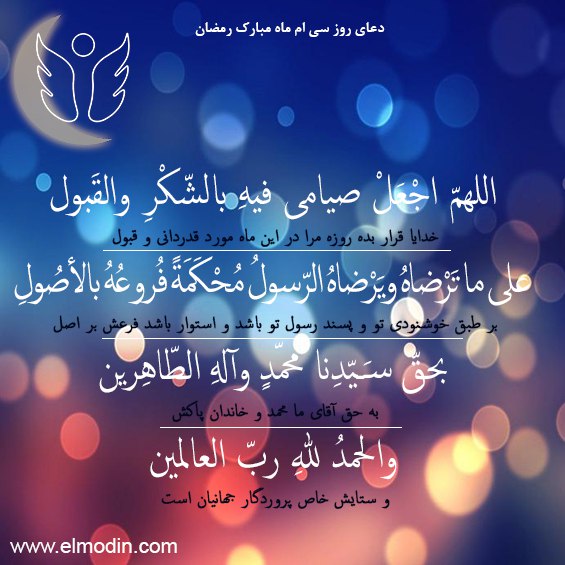 دعای روز سی ام ماه مبارک رمضان
اللهمّ اجْعَلْ صیامی فیهِ بالشّکْرِ والقَبول
خدایا قرار بده روزه مرا در این ماه مورد قدردانی و قبول
علی ما تَرْضاهُ ویَرْضاهُ الرّسولُ مُحْکَمَةً فُروعُهُ بالأصُولِ
بر طبق خوشنودی تو و پسند رسول تو باشد و استوار باشد فرعش بر اصل
بحقّ سَیّدِنا محمّدٍ وآلهِ الطّاهِرین
به حق آقای ما محمد و خاندان پاکش
والحمدُ للهِ ربّ العالمین
و ستایش خاص پروردگار جهانیان است
www.elmodin.com